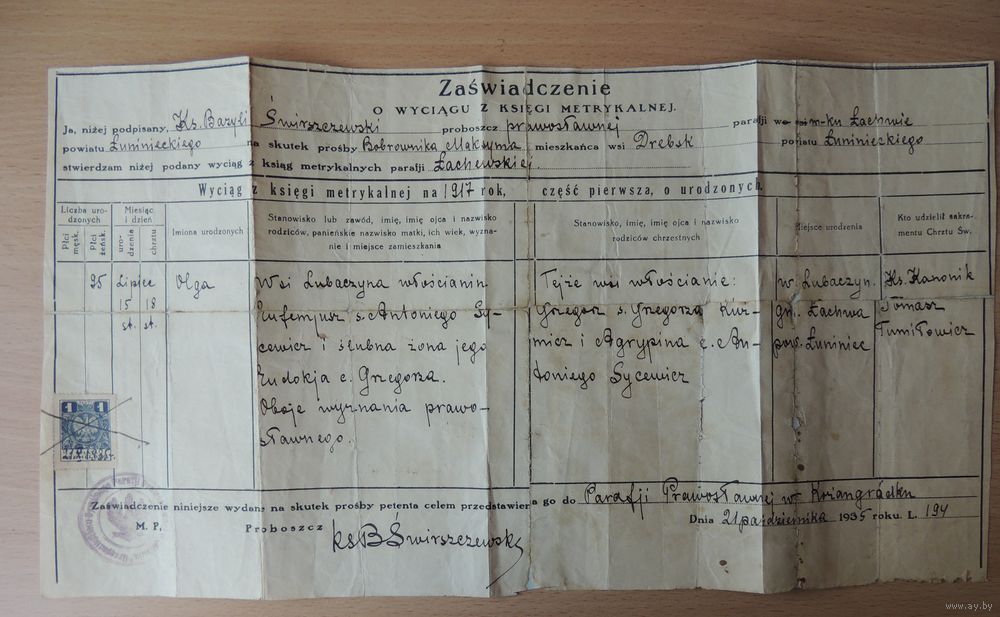 Zaświadczenie
O WYCIĄGU Z KSIĘGI METRYKALNEJ.
Ja, niżej podpisany, Ks. Bazyli Świrszczewski proboszcz prawosławnej parafji we m-ku Łachwie
powiatu Łuninieckiego na skutek prośby Bobrownika Maksyma mieszkańca wsi Drebsk powiatu Łuninieckiego
stwierdzam niżej podany wyciąg z ksiąg metrykalnych parafji Łachewskiej.
Wyciąg z księgi metrykalnej na 1917 rok, część pierwsza, o urodzonych.
Liczba urodzonych
Płci męsk.
Płci żeńsk.
Miesiąc i dzień
urodzenia
chrztu
Imiona urodzonych
Stanowisko lub zawód, imię, imię ojca i nazwisko
rodziców, panieńskie nazwisko matki, ich wiek, wyzna-
nie i miejsce zamieszkania
Stanowisko, imię, imię ojca i nazwisko
rodziców chrzestnych
Miejsce urodzenia
Kto udzielił sakra-
mentu Chrztu Św.
25
Lipiec
15 18
st. st.
Olga
W si Lubaczyna włościanin
Eufemjusz s. Antoniego Sy-
cewicz i ślubna żona jego
Eudokja c. Grzegorza.
Oboje wyznania prawo-
sławnego.
Tejże wsi włościanie:
Grzegorz s. Grzegorza Kuź-
micz i Agrypina c. An-
toniego Sycewicz
w. Lubaczyn.
gm. Łachwa
pow. Łuniniec
Ks. Kanonik
Tomasz
Tumiłowicz
1 1
Zaświadczenie niniejsze wydane na skutek prośby petenta celem przedstawienia go do Parafji Prawosławnej w
M. P. Proboszcz ks B Świrszczewski
Dnia 21 października 1935 roku. L. 194
www.ay.by